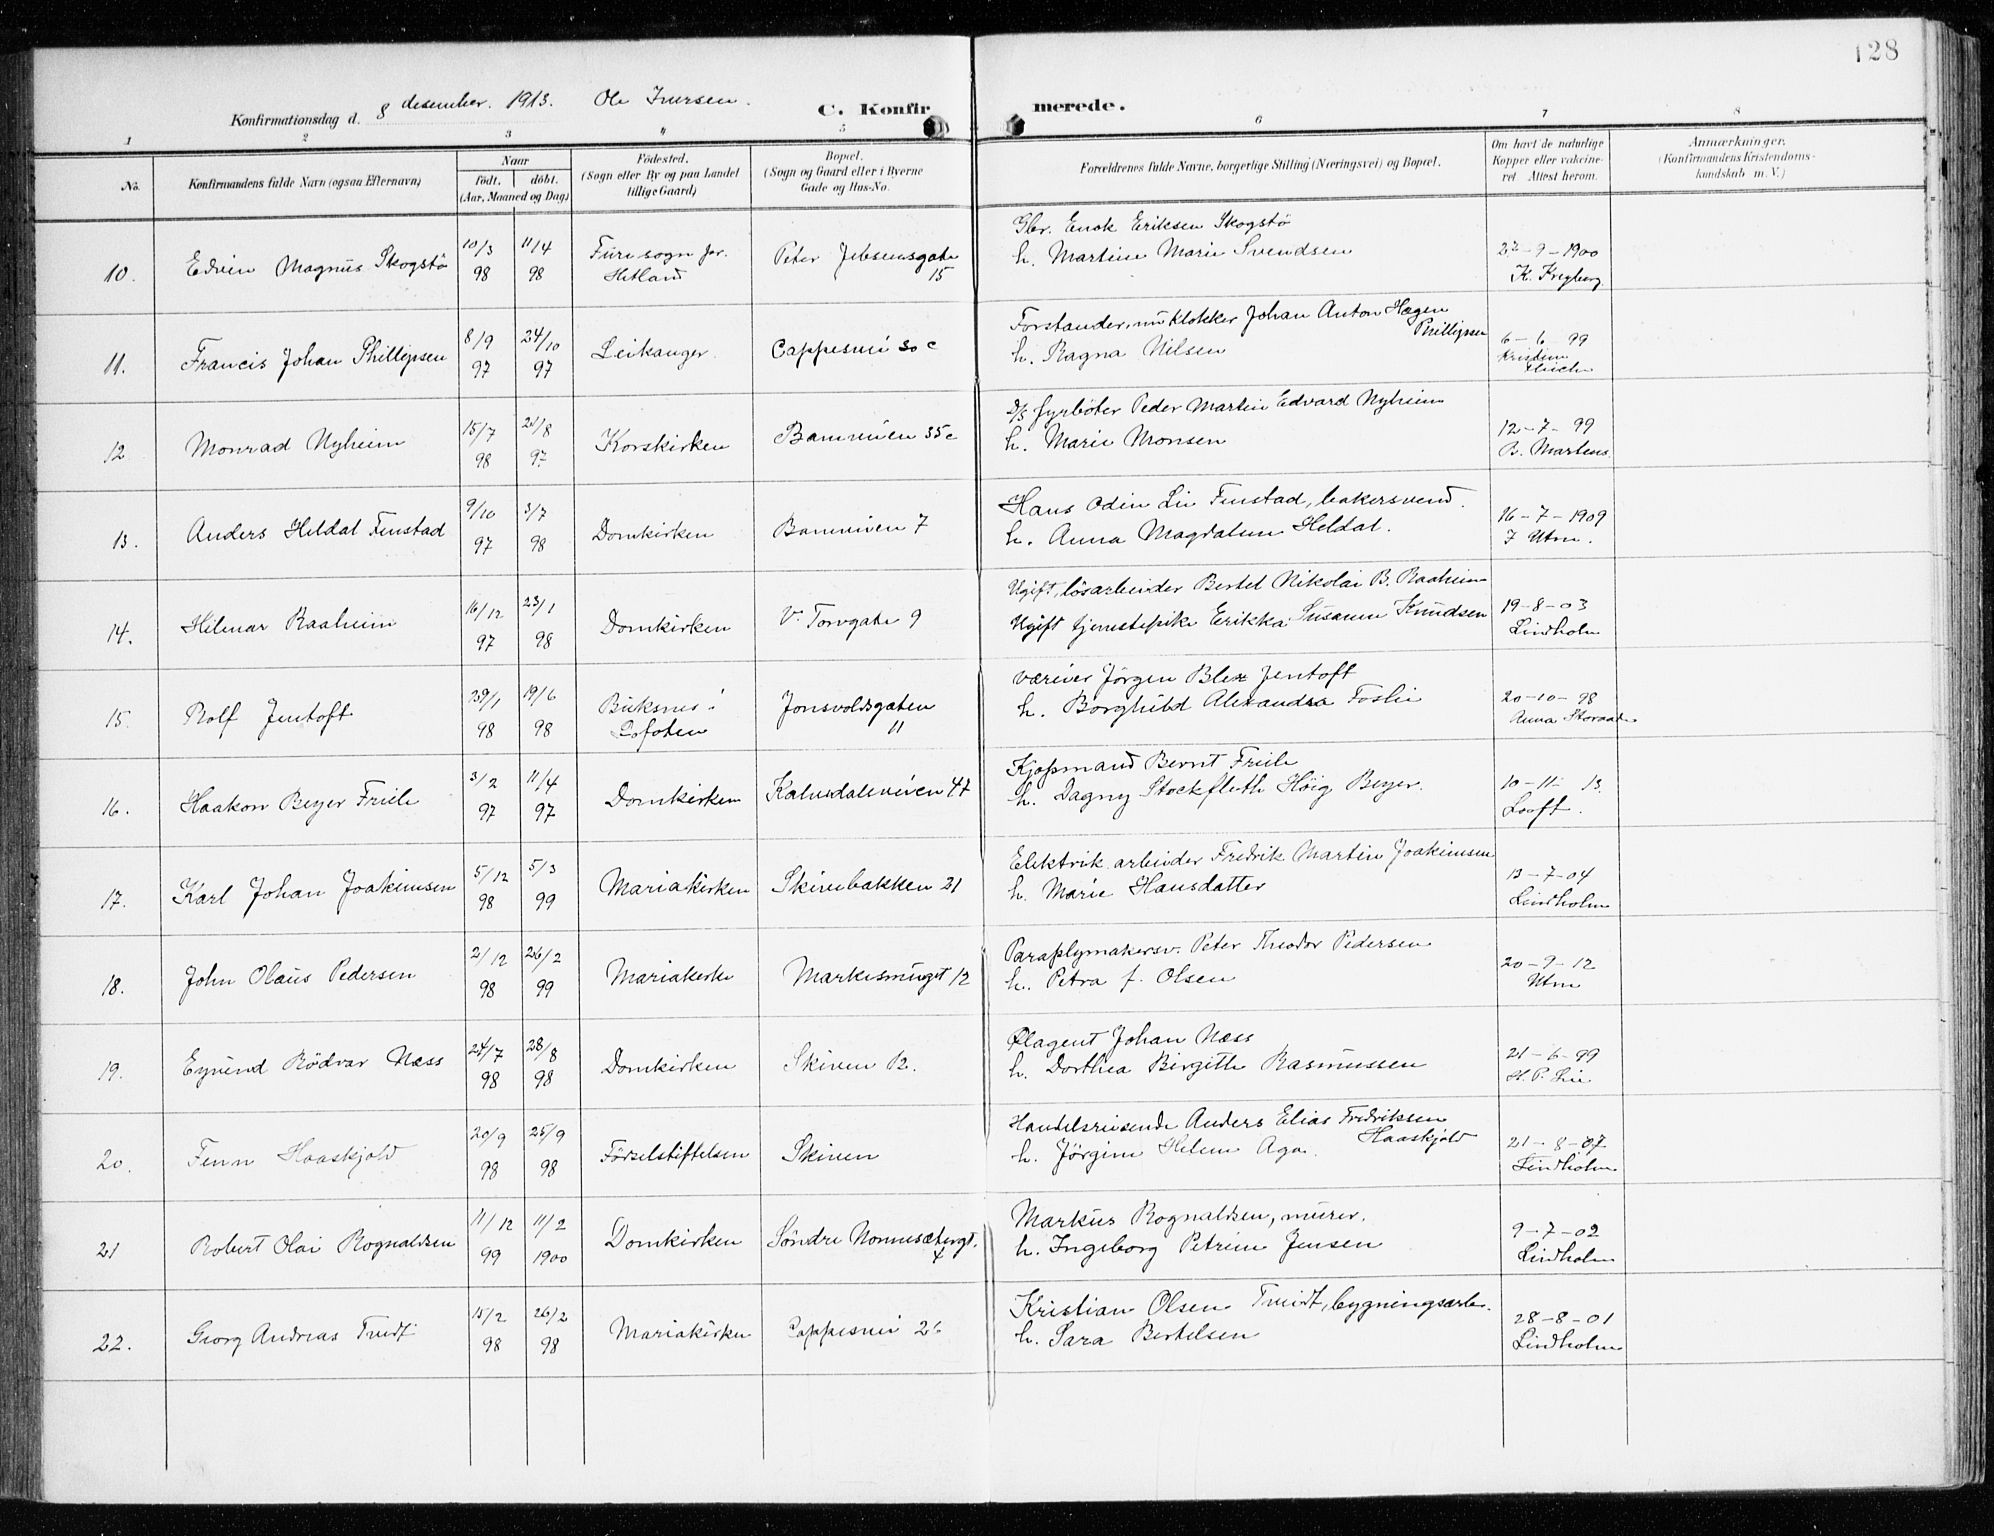 128
Konfirmationsdag d. 8 desember. 1913. Ole Iversen.
C. Konfirmerede.
1 2 3 4 5 6 7 8
No.
Konfirmandens fulde Navn (ogsaa Efternavn)
Naar
født. døbt.
(Aar, Maaned og Dag)
Fødested.
(Sogn eller By og paa Landet
tillige Gaard)
Bopæl.
(Sogn og Gaard eller i Byerne
Gade og Hus-No.
Forældrenes fulde Navne, borgerlige Stilling (Næringsvei) og Bopæl.
Om havt de naturlige
Kopper eller vakcine-
ret Attest herom.
Anmærkninger.
(Konfirmandens Kristendoms-
kundskab m. V.)
10. Edvin Magnus Skogstø
10/3 98
11/4 98
Hetland
Peter Jebsensgate
15
Gbr. Enok Eriksen Skogstø
h. Martine Marie Svendsen
-9-1900
11. Francis Johan Phillipsen
8/9 97
24/10 97
Leikanger.
Cappesmui 30 c
Forstander, nu Klokker Johan Anton Hagen
Phillipsen
h. Ragna Nilsen
6-6-99
12. Monrad Nyheim
15/7 98
/8 97
Korskirken
35c
D/S fyrbøter Peder Martin Edvard Nyheim
h. Marie Monsen
12-7-99
B. Martens
13. Anders Heldal Finstad
9/10 97
3/7 98
Domkirken
7
Hans Odin Lie Finstad, bakersvend.
h. Anna Magdalene Heldal.
16-7-1909
14. Hilmar Raaheim
16/12 97
23/1 98
Domkirken
V. Torvgate 9
Ugift, løsarbeider Bertel Nikolai B. Raaheim
Ugift tjenestepike Erikka Susanne Knudsen
19-8-03
Lindholm
15. Rolf Jentoft
29/1 98
19/6 98
Buksnes i
Lofoten
Jonsvoldsgaten
11
væreier Jørgen Blix Jentoft
h. Borghild Alexandra Foslie
20-10-98
16. Haakon Beyer Friele
3/2 97
11/4 97
Domkirken
Kalvedalsveien 47
Kjøpmand Bernt Friele
h. Dagny Stockfleth Høig Beyer.
10-11-13.
Looft.
17. Karl Johan Joakimsen
5/12 98
5/3 99
Mariakirken
Skivebakken 21
Elektrik. arbeider Fredrik Martin Joakimsen
h. Marie Hansdatter
13-7-04
Lindholm
18. John Olaus Pedersen
2/12 98
26/2 99
Mariakirke
Markesmuget 12
Paraplymakersv. Peter Theodor Pedersen
h. Petra f. Olsen
20-9-12
19. Eyvind Bødvar Næss
24/7 98
28/8 98
Domkirken
Skiven 12.
Johan Næss
h. Dorthea Birgitte Rasmussen
21-6-99
20. Finn Haaskjold
20/9 98
25/9 98
Førselstiftelsen
Skiven
Handelsreisende Anders Elias Fredriksen
Haaskjold
h. Jørgine Helene Aga.
21-8-07
Lindholm
21 Robert Olai Rognaldsen
11/12 99
11/2 1900
Domkirken
Søndre Nonnesætergt.
4
Markus Rognaldsen, murer.
h. Ingeborg Petrine Jensen
9-7-02
Lindholm
22. Georg Andreas Tveidt
15/2 98
26/2 98
Mariakirken
Cappesmui
Kristian Olsen Tveidt, bygningsarb.
h. Sara Bertelsen
28-8-01
Lindholm